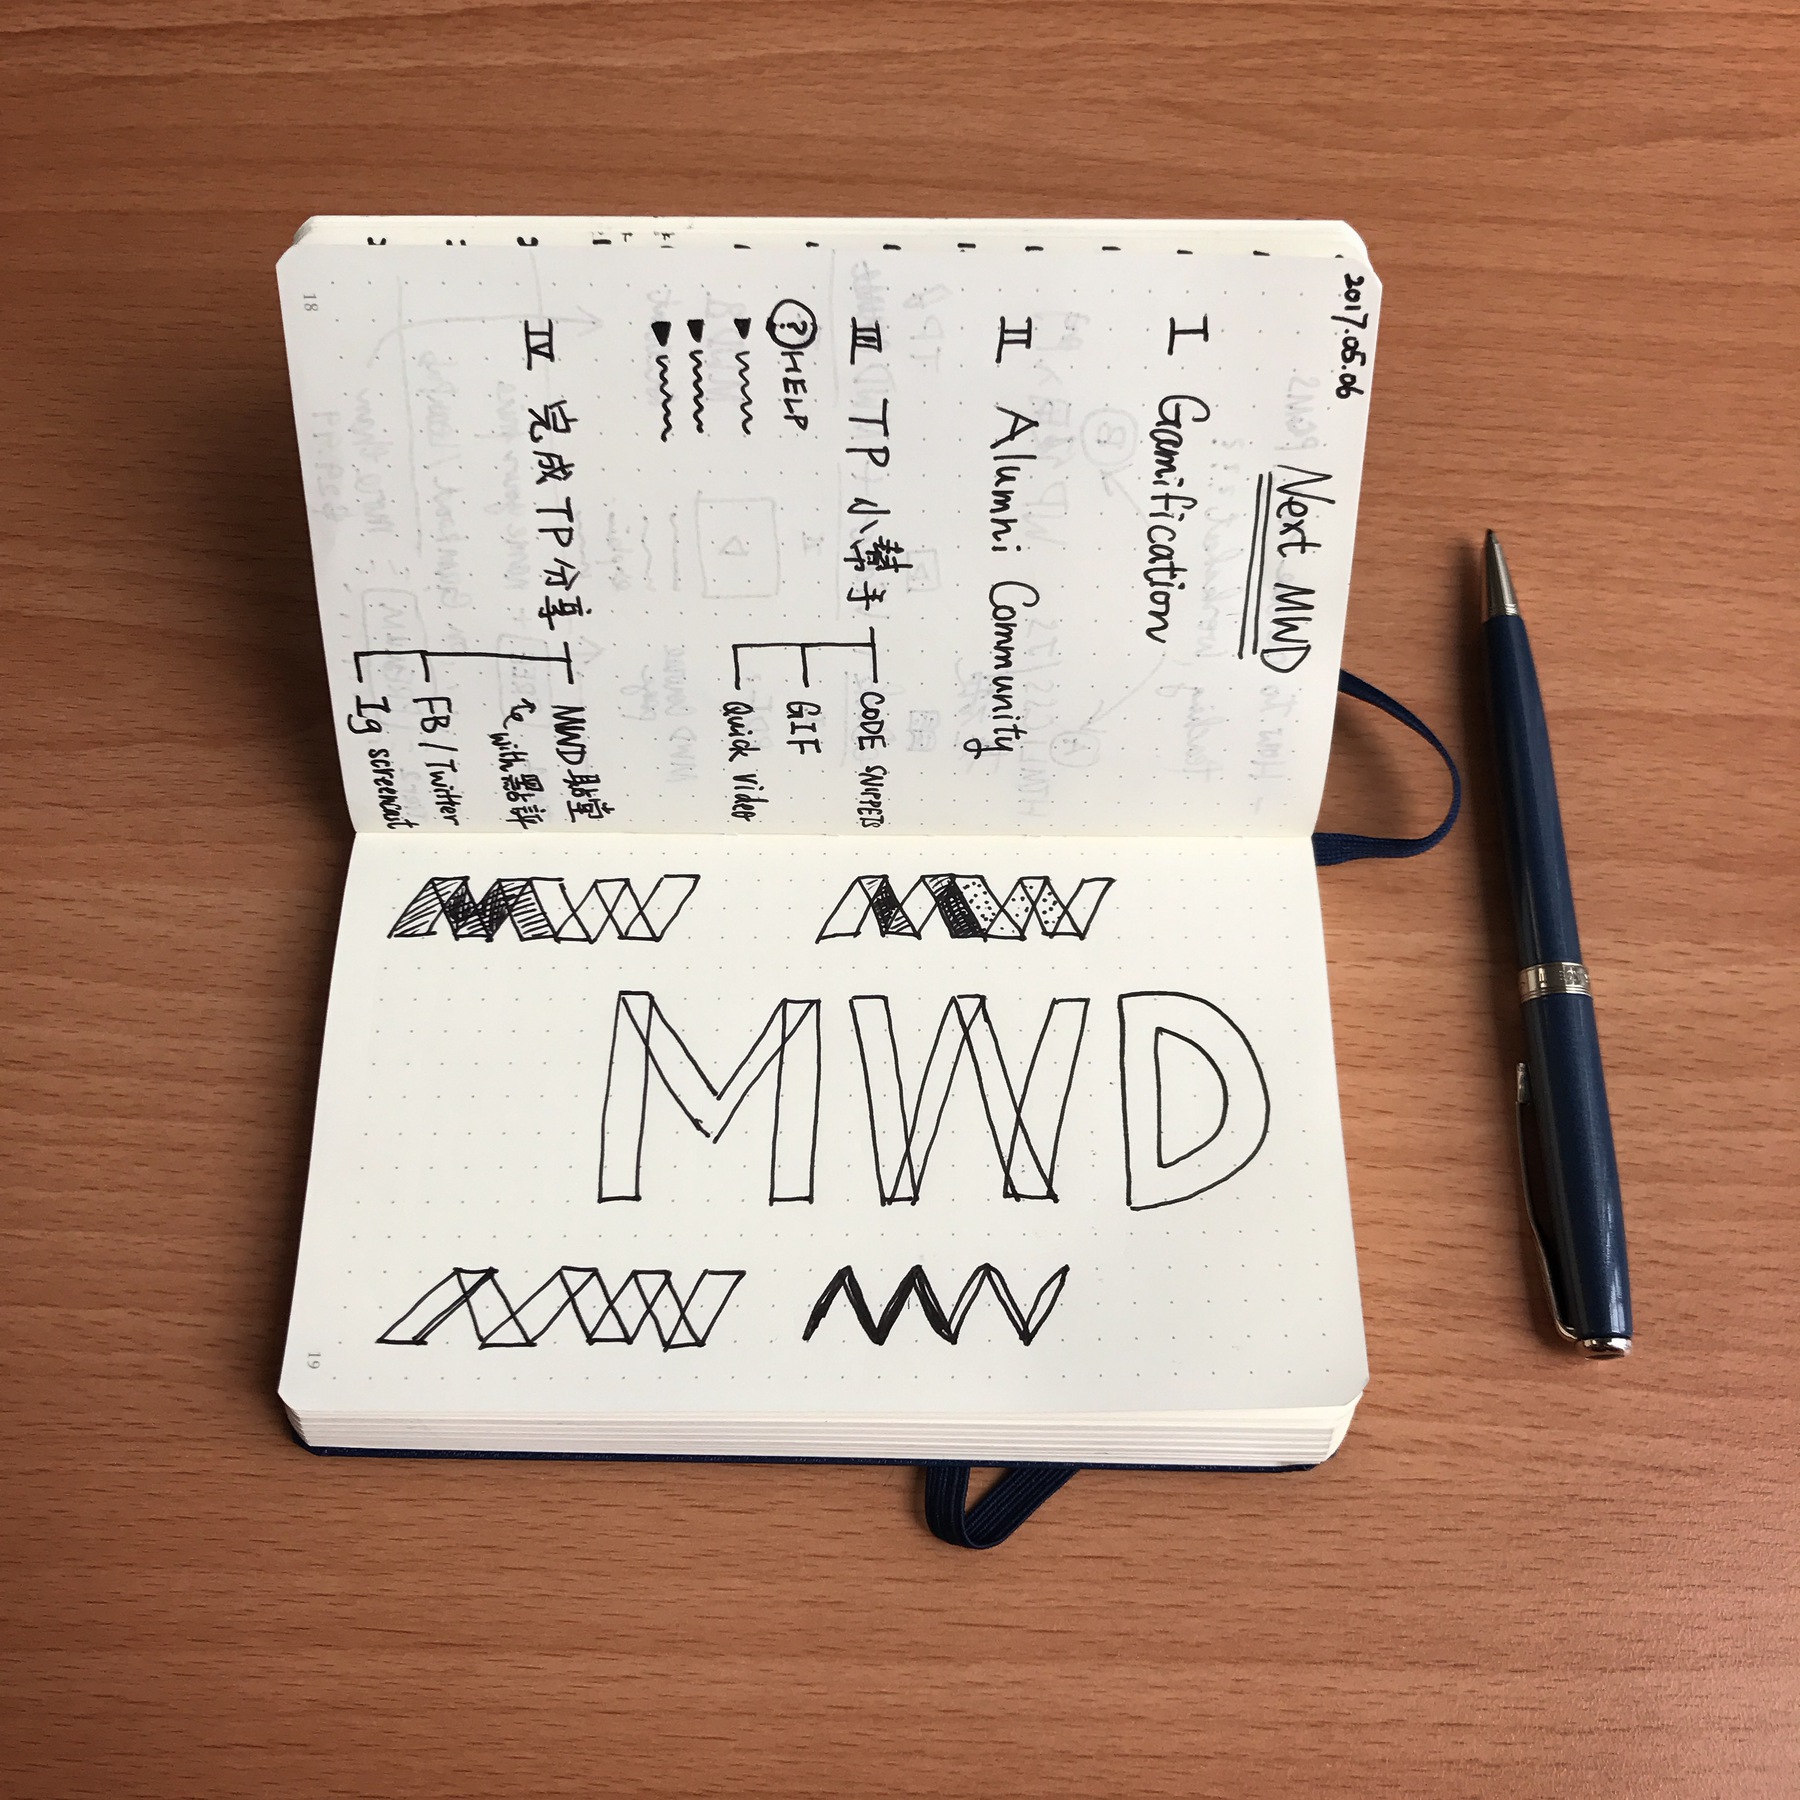 2017.05.06
Next MWD
I Gamification
II Alumni Community
III TP 小幫手
CODE SNIPPETS
GIF
Quick Video
? HELP
IV 完成 TP 分享
MWD 貼堂
with 點評
FB / Twitter
Ig screenist
18
MW
MW
MWD
MW
MW
19